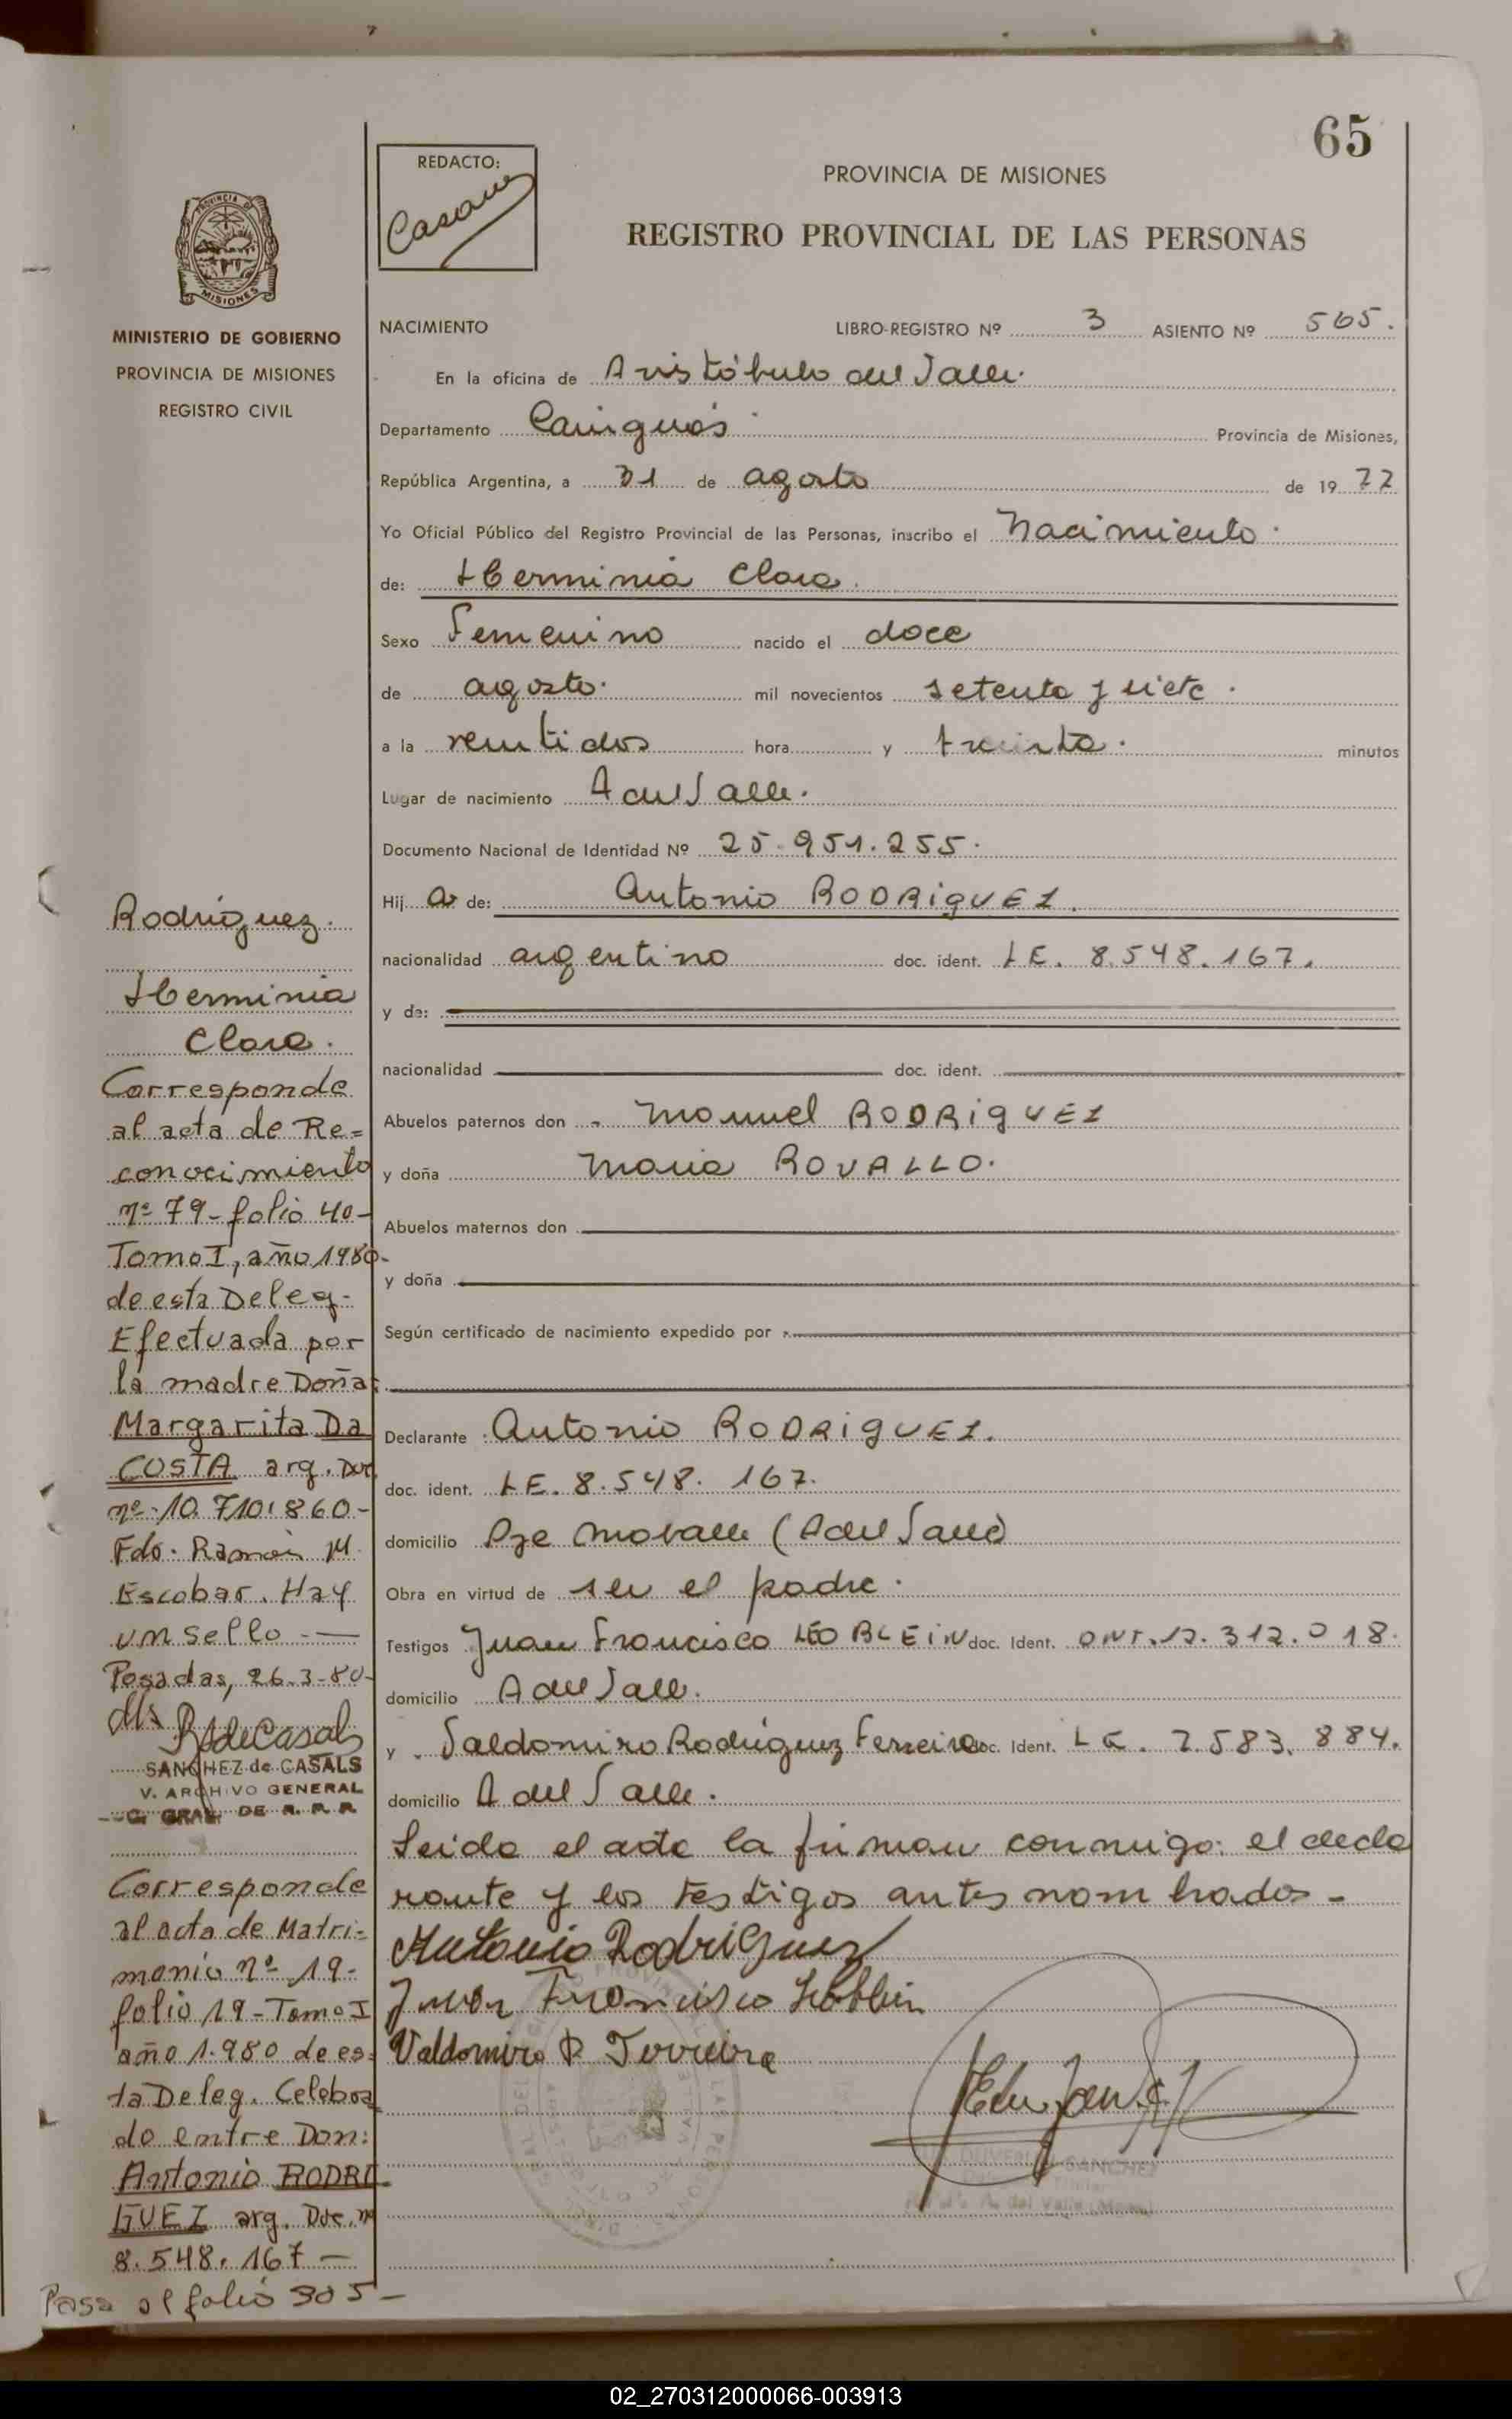 65
REDACTO:
PROVINCIA DE MISIONES
REGISTRO PROVINCIAL DE LAS PERSONAS
MISIONES
MINISTERIO DE GOBIERNO
PROVINCIA DE MISIONES
REGISTRO CIVIL
NACIMIENTO LIBRO-REGISTRO Nº 3 ASIENTO Nº 565.
En la oficina de Aristóbulo del Valle.
Departamento Cainguás
Provincia de Misiones,
República Argentina, a 31 de agosto de 19 77
Yo Oficial Público del Registro Provincial de las Personas, inscribo el Nacimiento.
de: Herminia Clara.
Sexo Femenino nacido el doce
de agosto. mil novecientos setenta y siete.
a la veintidos hora y treinta. minutos
Lugar de nacimiento A del Valle.
Documento Nacional de Identidad Nº 25.951.255.
Hij a de: Antonio RODRIGUEZ.
nacionalidad argentino doc. ident. L.E. 8.548.167.
y de:
nacionalidad doc. ident.
Abuelos paternos don Manuel RODRIGUEZ
y doña Maria ROVALLO.
Abuelos maternos don
y doña
Según certificado de nacimiento expedido por
Declarante Antonio RODRIGUEZ.
doc. ident. L.E. 8.548.167.
domicilio Pje (A del Valle)
Obra en virtud de ser el padre.
Testigos Juan Francisco LEO BLEIN doc. Ident. DNI. 312.018.
domicilio A del Valle.
y Valdomiro Rodríguez Ferreira doc. Ident. L E. 7.583.884.
domicilio A del Valle.
Leida el acta la firman conmigo: el decla
rante y los testigos antes nombrados -
Antonio Rodriguez
Juan Francisco Leoblein
Valdomiro R. Ferreira
SANCHEZ
Rodríguez.
Herminia
Clara.
Corresponde
al acta de Re=
conocimiento
nº 79-folio 40-
Tomo I, año 1980-
de esta Deleg-
Efectuada por
la madre Doña:
Margarita Da
COSTA arg. Doc
nº 10.710.860-
Fdo. Ramón M.
Escobar. Hay
un sello.—
Posadas, 26-3-80-
SANCHEZ de CASALS
V. ARCHIVO GENERAL
GRAL DE R. P. P.
Corresponde
al acta de Matri-
monio nº 19-
folio 19-Tomo I
año 1.980 de es-
ta Deleg. Celebra
do entre Don:
Antonio RODRI
GUEZ arg. Doc. nº
8.548.167—
Pasa al folio 305-
02_270312000066-003913